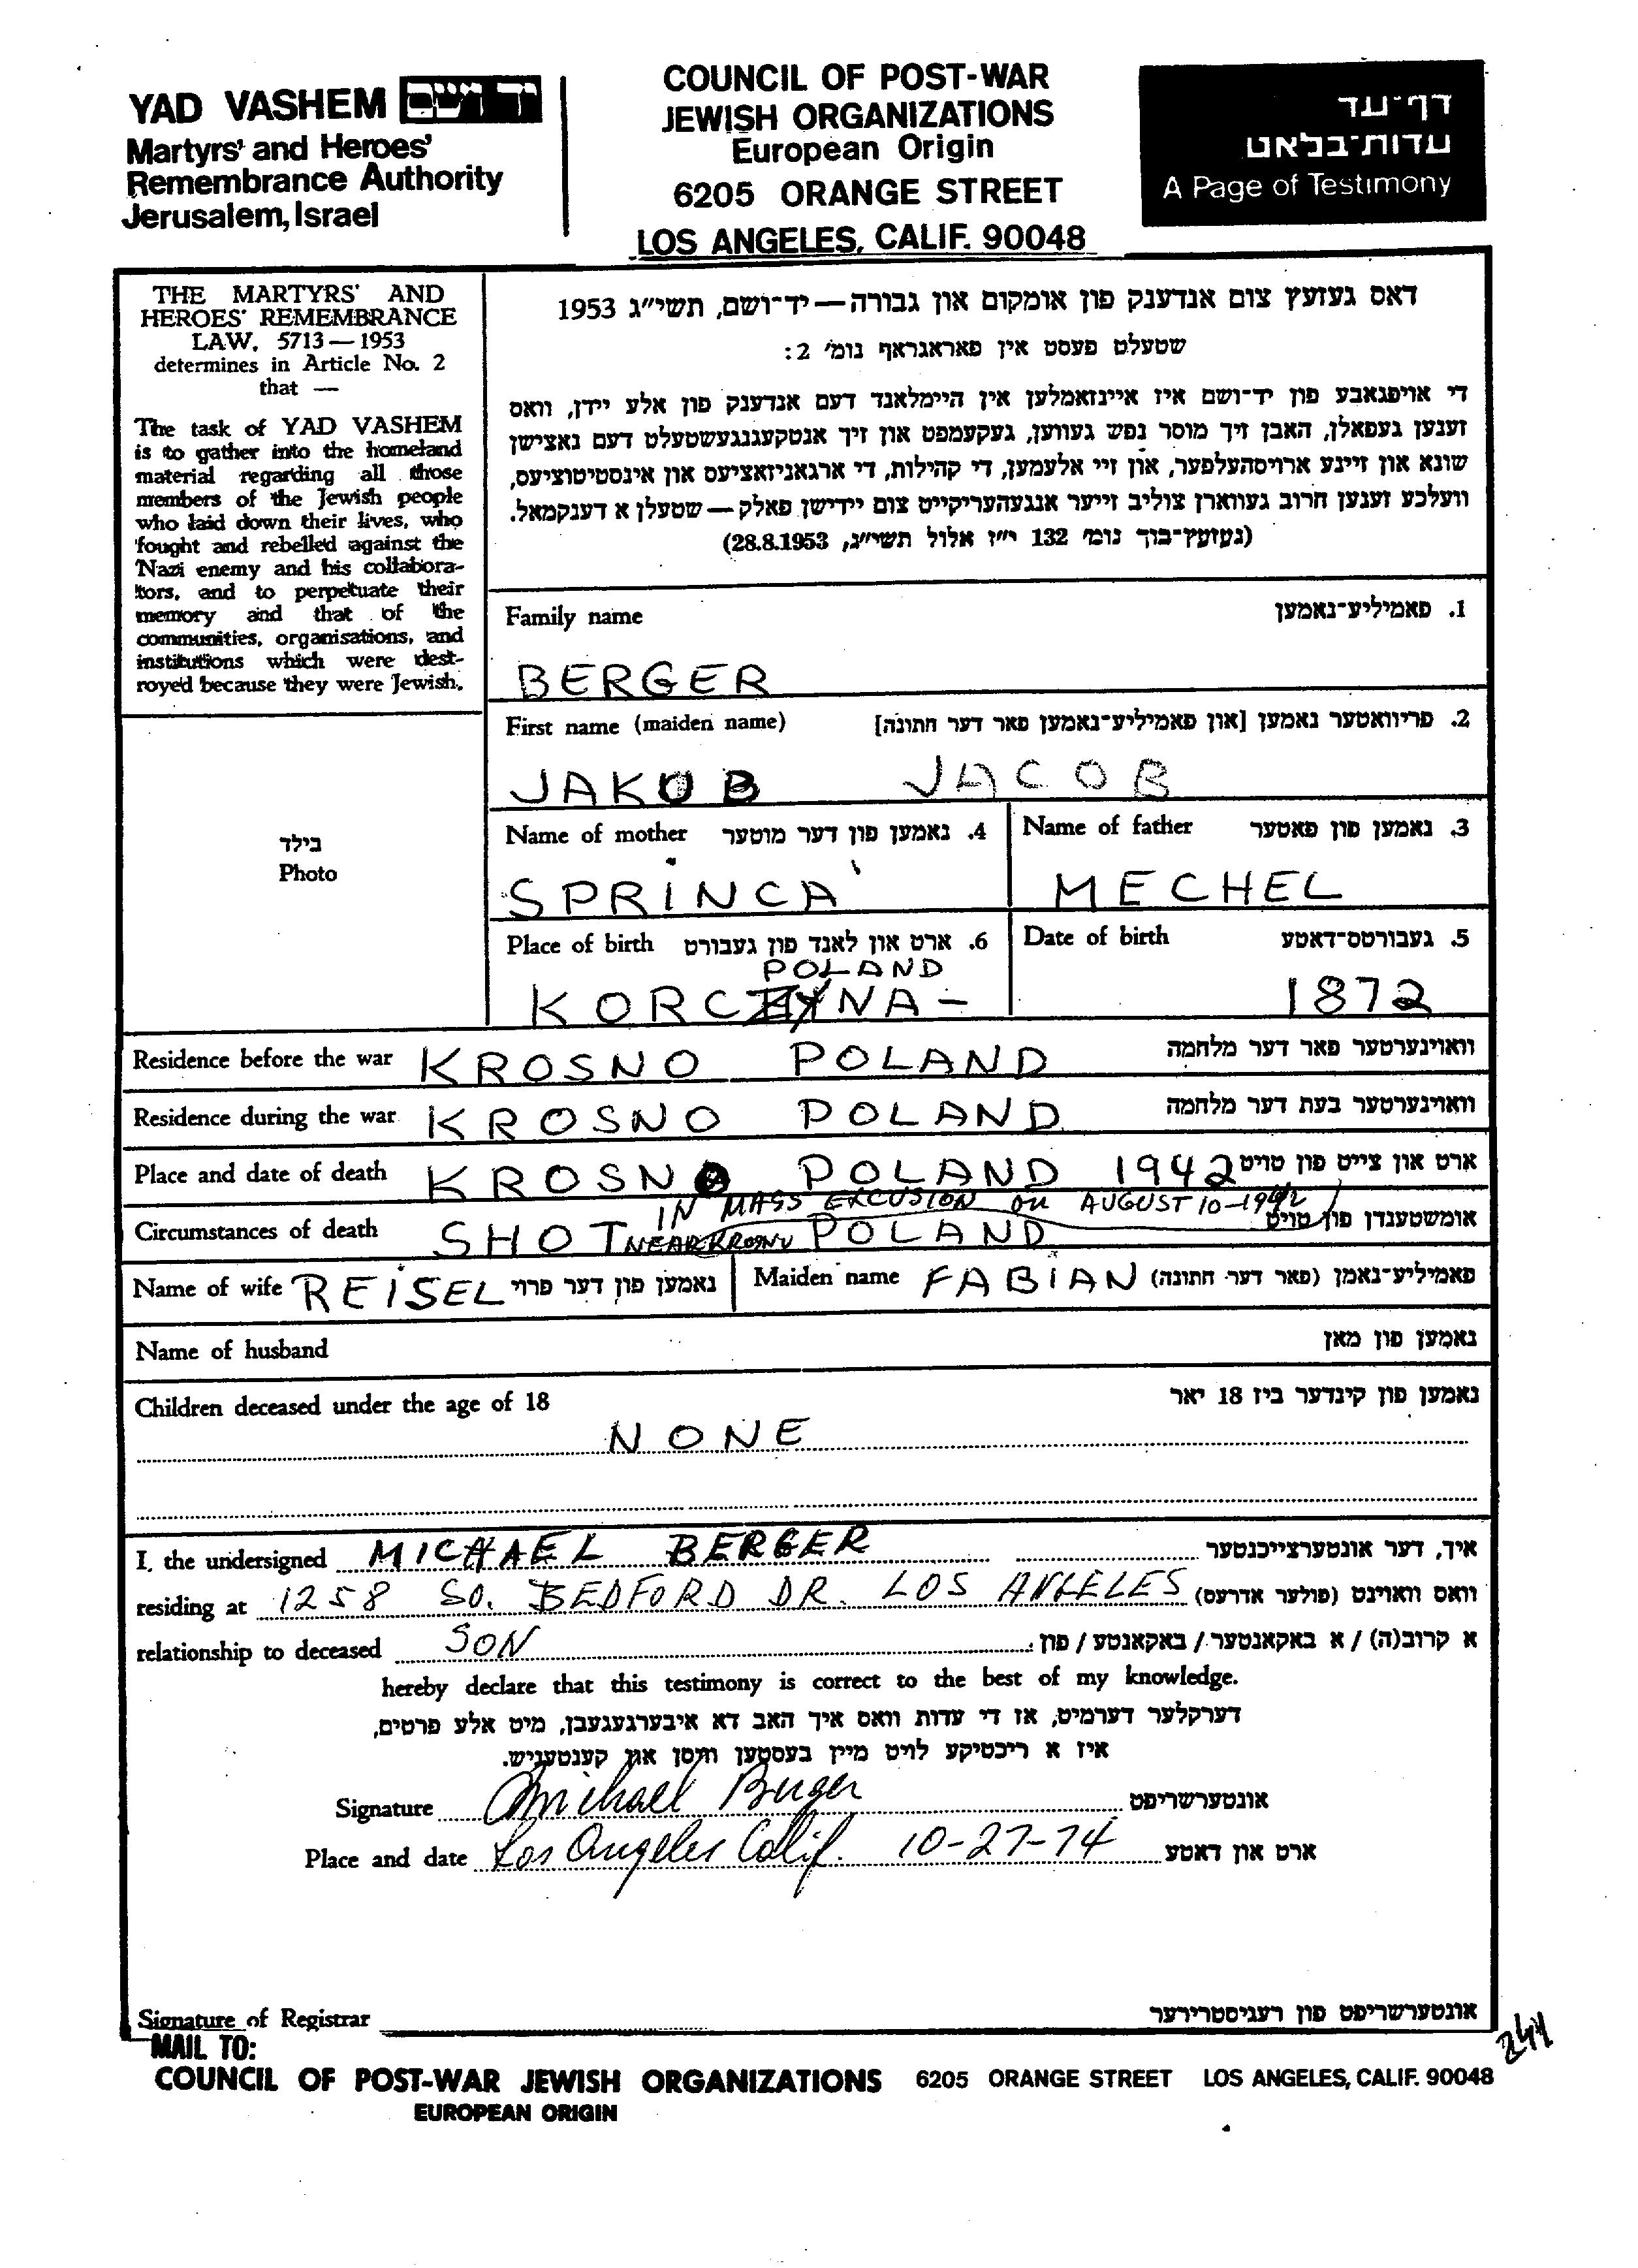 YAD VASHEM יד ושם
Martyrs' and Heroes'
Remembrance Authority
Jerusalem, Israel
COUNCIL OF POST-WAR
JEWISH ORGANIZATIONS
European Origin
6205 ORANGE STREET
LOS ANGELES, CALIF. 90048
דף-עד
עדות-בלאט
A Page of Testimony
THE MARTYRS' AND
HEROES' REMEMBRANCE
LAW, 5713—1953
determines in Article No. 2
that —
The task of YAD VASHEM
is to gather into the homeland
material regarding all those
members of the Jewish people
who laid down their lives, who
fought and rebelled against the
Nazi enemy and his collabora-
tors, and to perpetuate their
memory and that of the
communities, organisations, and
institutions which were dest-
royed because they were Jewish.
דאס געזעץ צום אנדענק פון אומקום און גבורה — יד-ושם, תשי"ג 1953
שטעלט פעסט אין פאראגראף נומ' 2:
די אויפגאבע פון יד-ושם איז איינזאמלען אין היימלאנד דעם אנדענק פון אלע יידן, וואס
זענען געפאלן, האבן זיך מוסר נפש געווען, געקעמפט און זיך אנטקעגנגעשטעלט דעם נאצישן
שונא און זיינע ארויסהעלפער, און זיי אלעמען, די קהילות, די ארגאניזאציעס און אינסטיטוציעס,
וועלכע זענען חרוב געווארן צוליב זייער אנגעהעריקייט צום יידישן פאלק — שטעלן א דענקמאל.
(געזעץ-בוך נומ' 132 י"ז אלול תשי"ג, 28.8.1953)
Family name 1. פאמיליע-נאמען
BERGER
First name (maiden name) 2. פריוואטער נאמען [און פאמיליע-נאמען פאר דער חתונה]
JAKUB JACOB
Name of mother 4. נאמען פון דער מוטער
SPRINCA
Name of father 3. נאמען פון פאטער
MECHEL
Place of birth 6. ארט און לאנד פון געבורט
POLAND
KORCZYNA -
Date of birth 5. געבורטס-דאטע
1872
בילד
Photo
Residence before the war KROSNO POLAND וואוינערטער פאר דער מלחמה
Residence during the war KROSNO POLAND וואוינערטער בעת דער מלחמה
Place and date of death KROSNO POLAND 1942 ארט און צייט פון טויט
IN MASS EXCUSION ON AUGUST 10-1942
Circumstances of death SHOT NEAR KROSNO POLAND אומשטענדן פון טויט
Name of wife REISEL נאמען פון דער פרוי Maiden name FABIAN פאמיליע-נאמן (פאר דער חתונה)
Name of husband נאמען פון מאן
Children deceased under the age of 18 נאמען פון קינדער ביז 18 יאר
NONE
I, the undersigned MICHAEL BERGER איך, דער אונטערצייכנטער
residing at 1258 SO. BEDFORD DR. LOS ANGELES וואס וואוינט (פולער אדרעס)
relationship to deceased SON א קרוב(ה) / א באקאנטער / באקאנטע / פון
hereby declare that this testimony is correct to the best of my knowledge.
דערקלער דערמיט, אז די עדות וואס איך האב דא איבערגעגעבן, מיט אלע פרטים,
איז א ריכטיקע לויט מיין בעסטען וויסן און קענטעניש.
Signature Michael Berger אונטערשריפט
Place and date Los Angeles Calif. 10-27-74 ארט און דאטע
Signature of Registrar אונטערשריפט פון רעגיסטרירער
244
MAIL TO:
COUNCIL OF POST-WAR JEWISH ORGANIZATIONS 6205 ORANGE STREET LOS ANGELES, CALIF. 90048
EUROPEAN ORIGIN